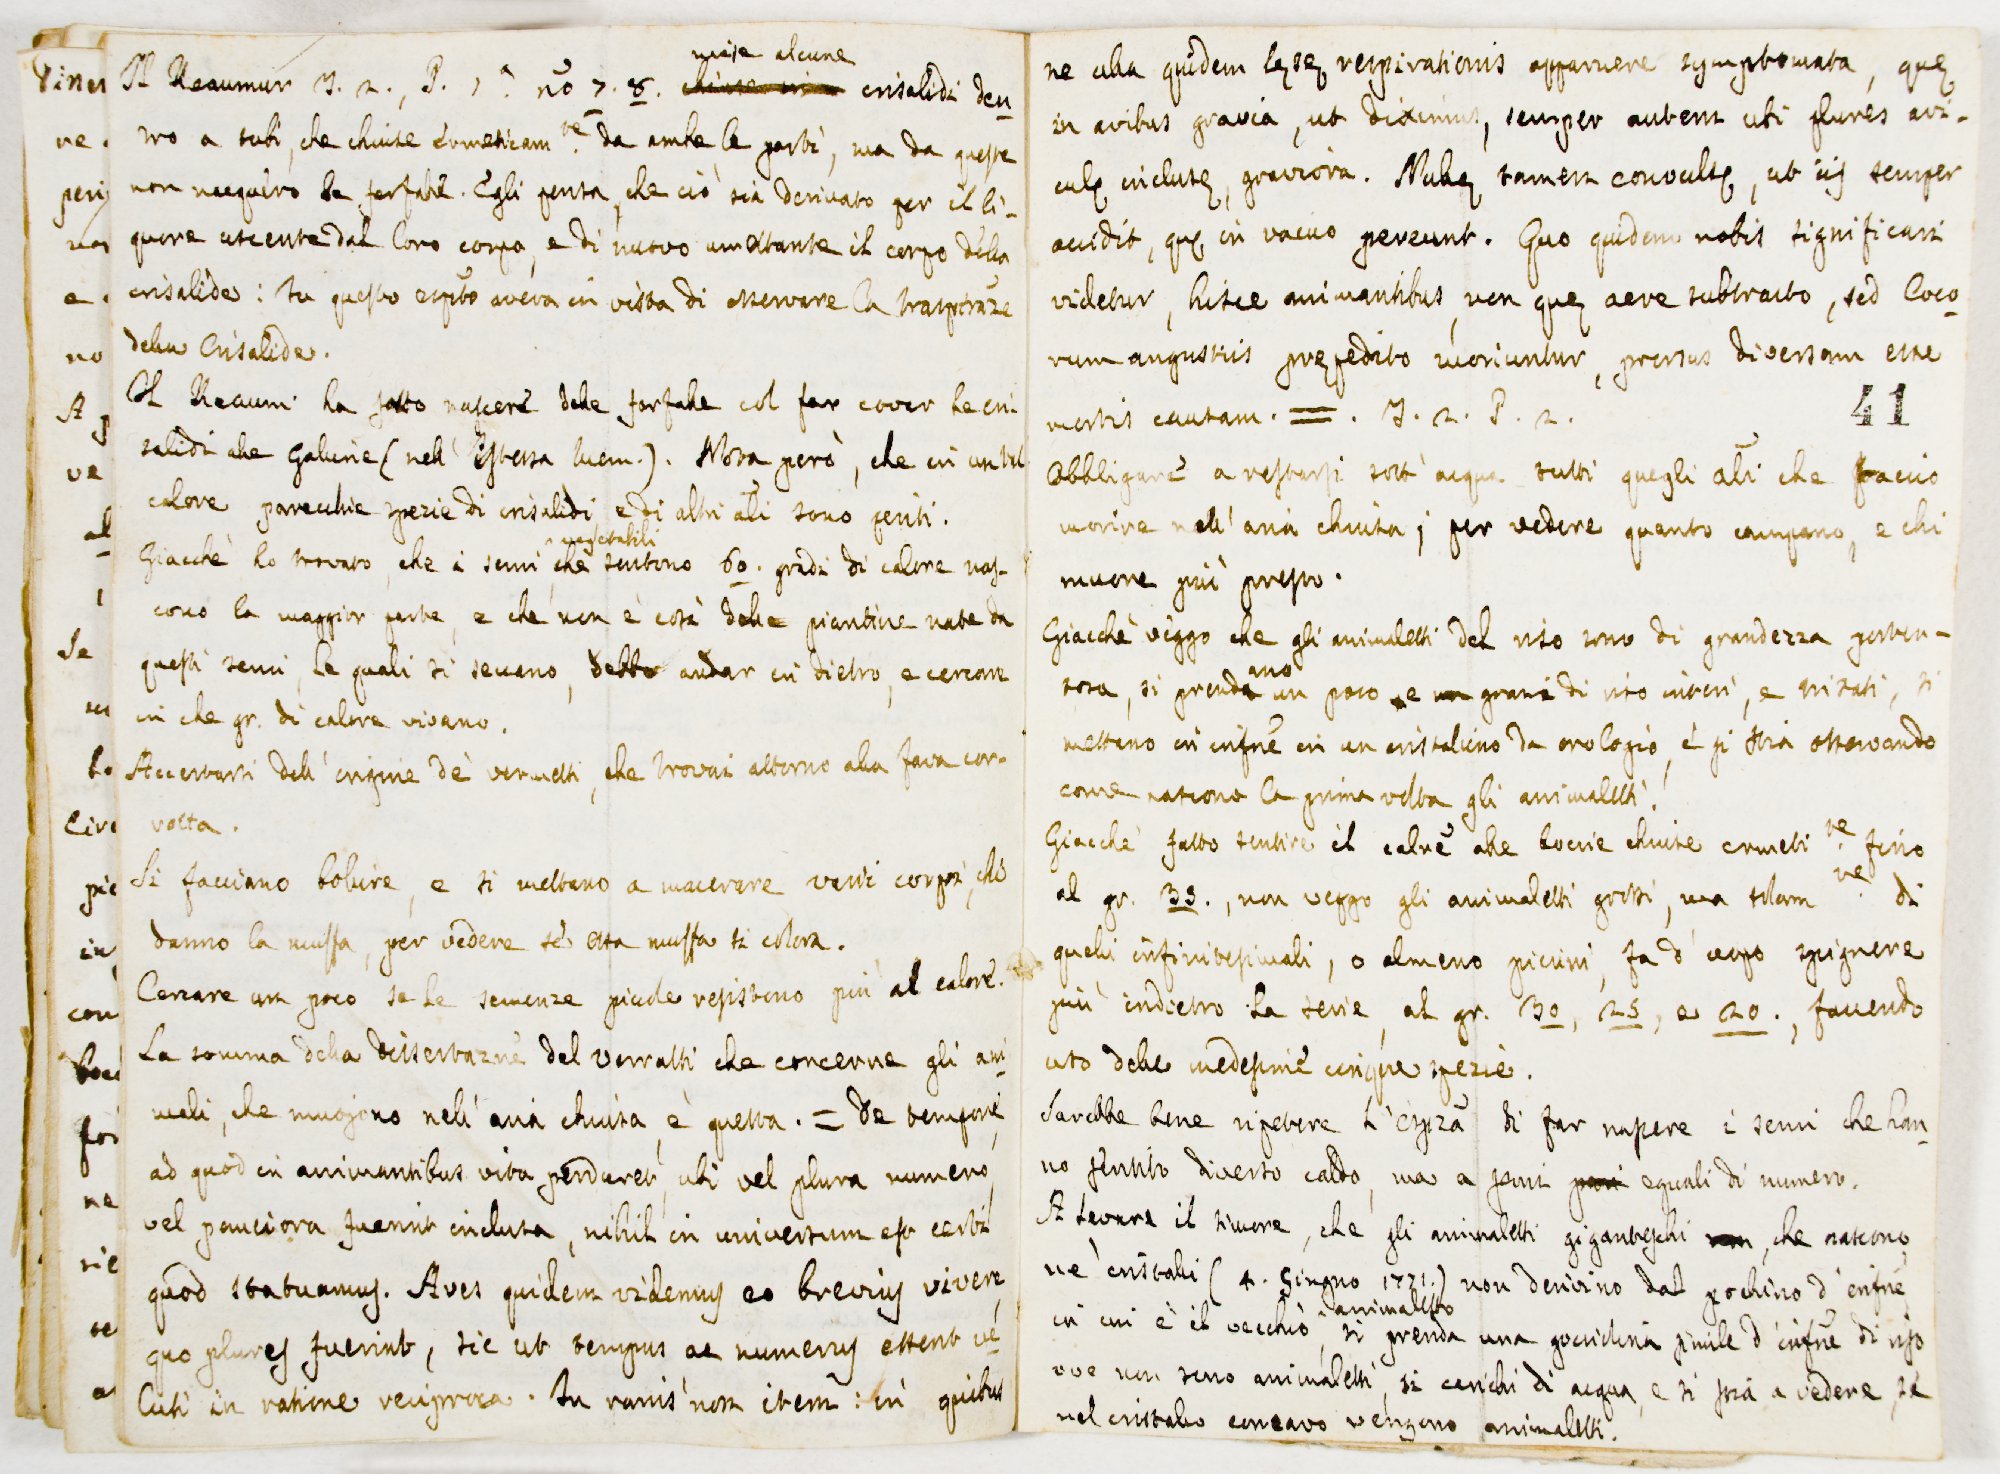 Il Reaumur T. 2., P. 1.ª nō 7. 8. mise alcune crisalidi den
tro a tubi, che chiuse ermeticam.te da ambe le parti, ma da queste
non nacquero le farfalle. Egli pensa, che ciò sia derivato per il li-
quore uscente dal loro corpo, e di nuovo umettante il corpo della
crisalide: In questo aveva in vista di osservare la
della Crisalide.
Il Reaum. ha fatto nascere delle farfalle col far covar le cri
salidi alle Galline (nell' istessa mem.). Nota però, che in un tal
calore parecchie spezie di crisalidi, e di altri āli sono periti.
Giacchè ho trovato, che i semi vegetabili che sentono 60. gradi di calore nas-
cono la maggior parte, e che non è così delle piantine nate da
questi semi, le quali si seccano, debbo andar in dietro, e cercare
in che gr. di calore vivano.
Accertarsi dell' origine de' vermetti, che trovai attorno alla fava cor-
rotta.
Si facciano bollire, e si mettano a macerare varii corpi, che
danno la muffa, per vedere se essa muffa si colora.
Cercare un poco se le semenze piccole resistono più al calore.
La somma della dissertazne del Verratti che concerne gli ani
mali, che muojono nell' aria chiusa, è questa. = De tempore,
ad quod in animantibus vita perduret, ubi vel plura numero,
vel pauciora fuerint inclusa, nihil in universum est certi
quod statuamus. Aves quidem videmus eo brevius vivere,
quo plures fuerint, sic ut tempus ac numerus essent ve
luti in ratione reciproca. In ranis non item: in quibus
ne ulla quidem lęsę respirationis apparuere symptomata, quę
in avibus gravia, ut diximus, semper autem ubi plures avi-
culę inclusę, graviora. Nullę tamen convulsę, ut iis semper
accidit, quę in vacuo pereunt. Quo quidem nobis significari
videtur, hisce animantibus, non quę aere subtracto, sed loco
rum angustiis prępedito moriuntur, prorsus diversam esse
mortis causam. =. T. 2. P. 2.
41
Obbligare a restarsi sott' acqua tutti quegli āli che faccio
morire nell' aria chiusa; per vedere quanto campano, e chi
muore più presto.
Giacchè veggo che gli animaletti del riso sono di grandezza porten-
tosa, si prendano un poco e grani di riso interi, e tritati, si
mettano in infnē in un cristallino da orologio, e si stia osservando
come nascono la prima volta gli animaletti.
Giacchè fatto sentire il calrē alle boccie chiuse ermeti.te fino
al gr. 35., non veggo gli animaletti grossi, ma solam.te di
quelli infinitesimali, o almeno piccini, fa d' uopo spignere
più indietro la serie, al gr. 30, 25, e 20., facendo
uso delle medesime cinque spezie.
Sarebbe bene ripetere l' espzā di far nascere i semi che han
no sentito diverso caldo, ma a semi eguali di numero.
A levare il timore, che gli animaletti giganteschi, che nascono
ne' cristalli (4. Giugno 1771.) non derivino dal pochino d' infnē
in cui è il vecchio animaletto, si prenda una gocciolina simile d' infnē di riso
ove non sono animaletti, si carichi di acqua, e si stia a vedere, se
nel cristallo concavo vengono animaletti.